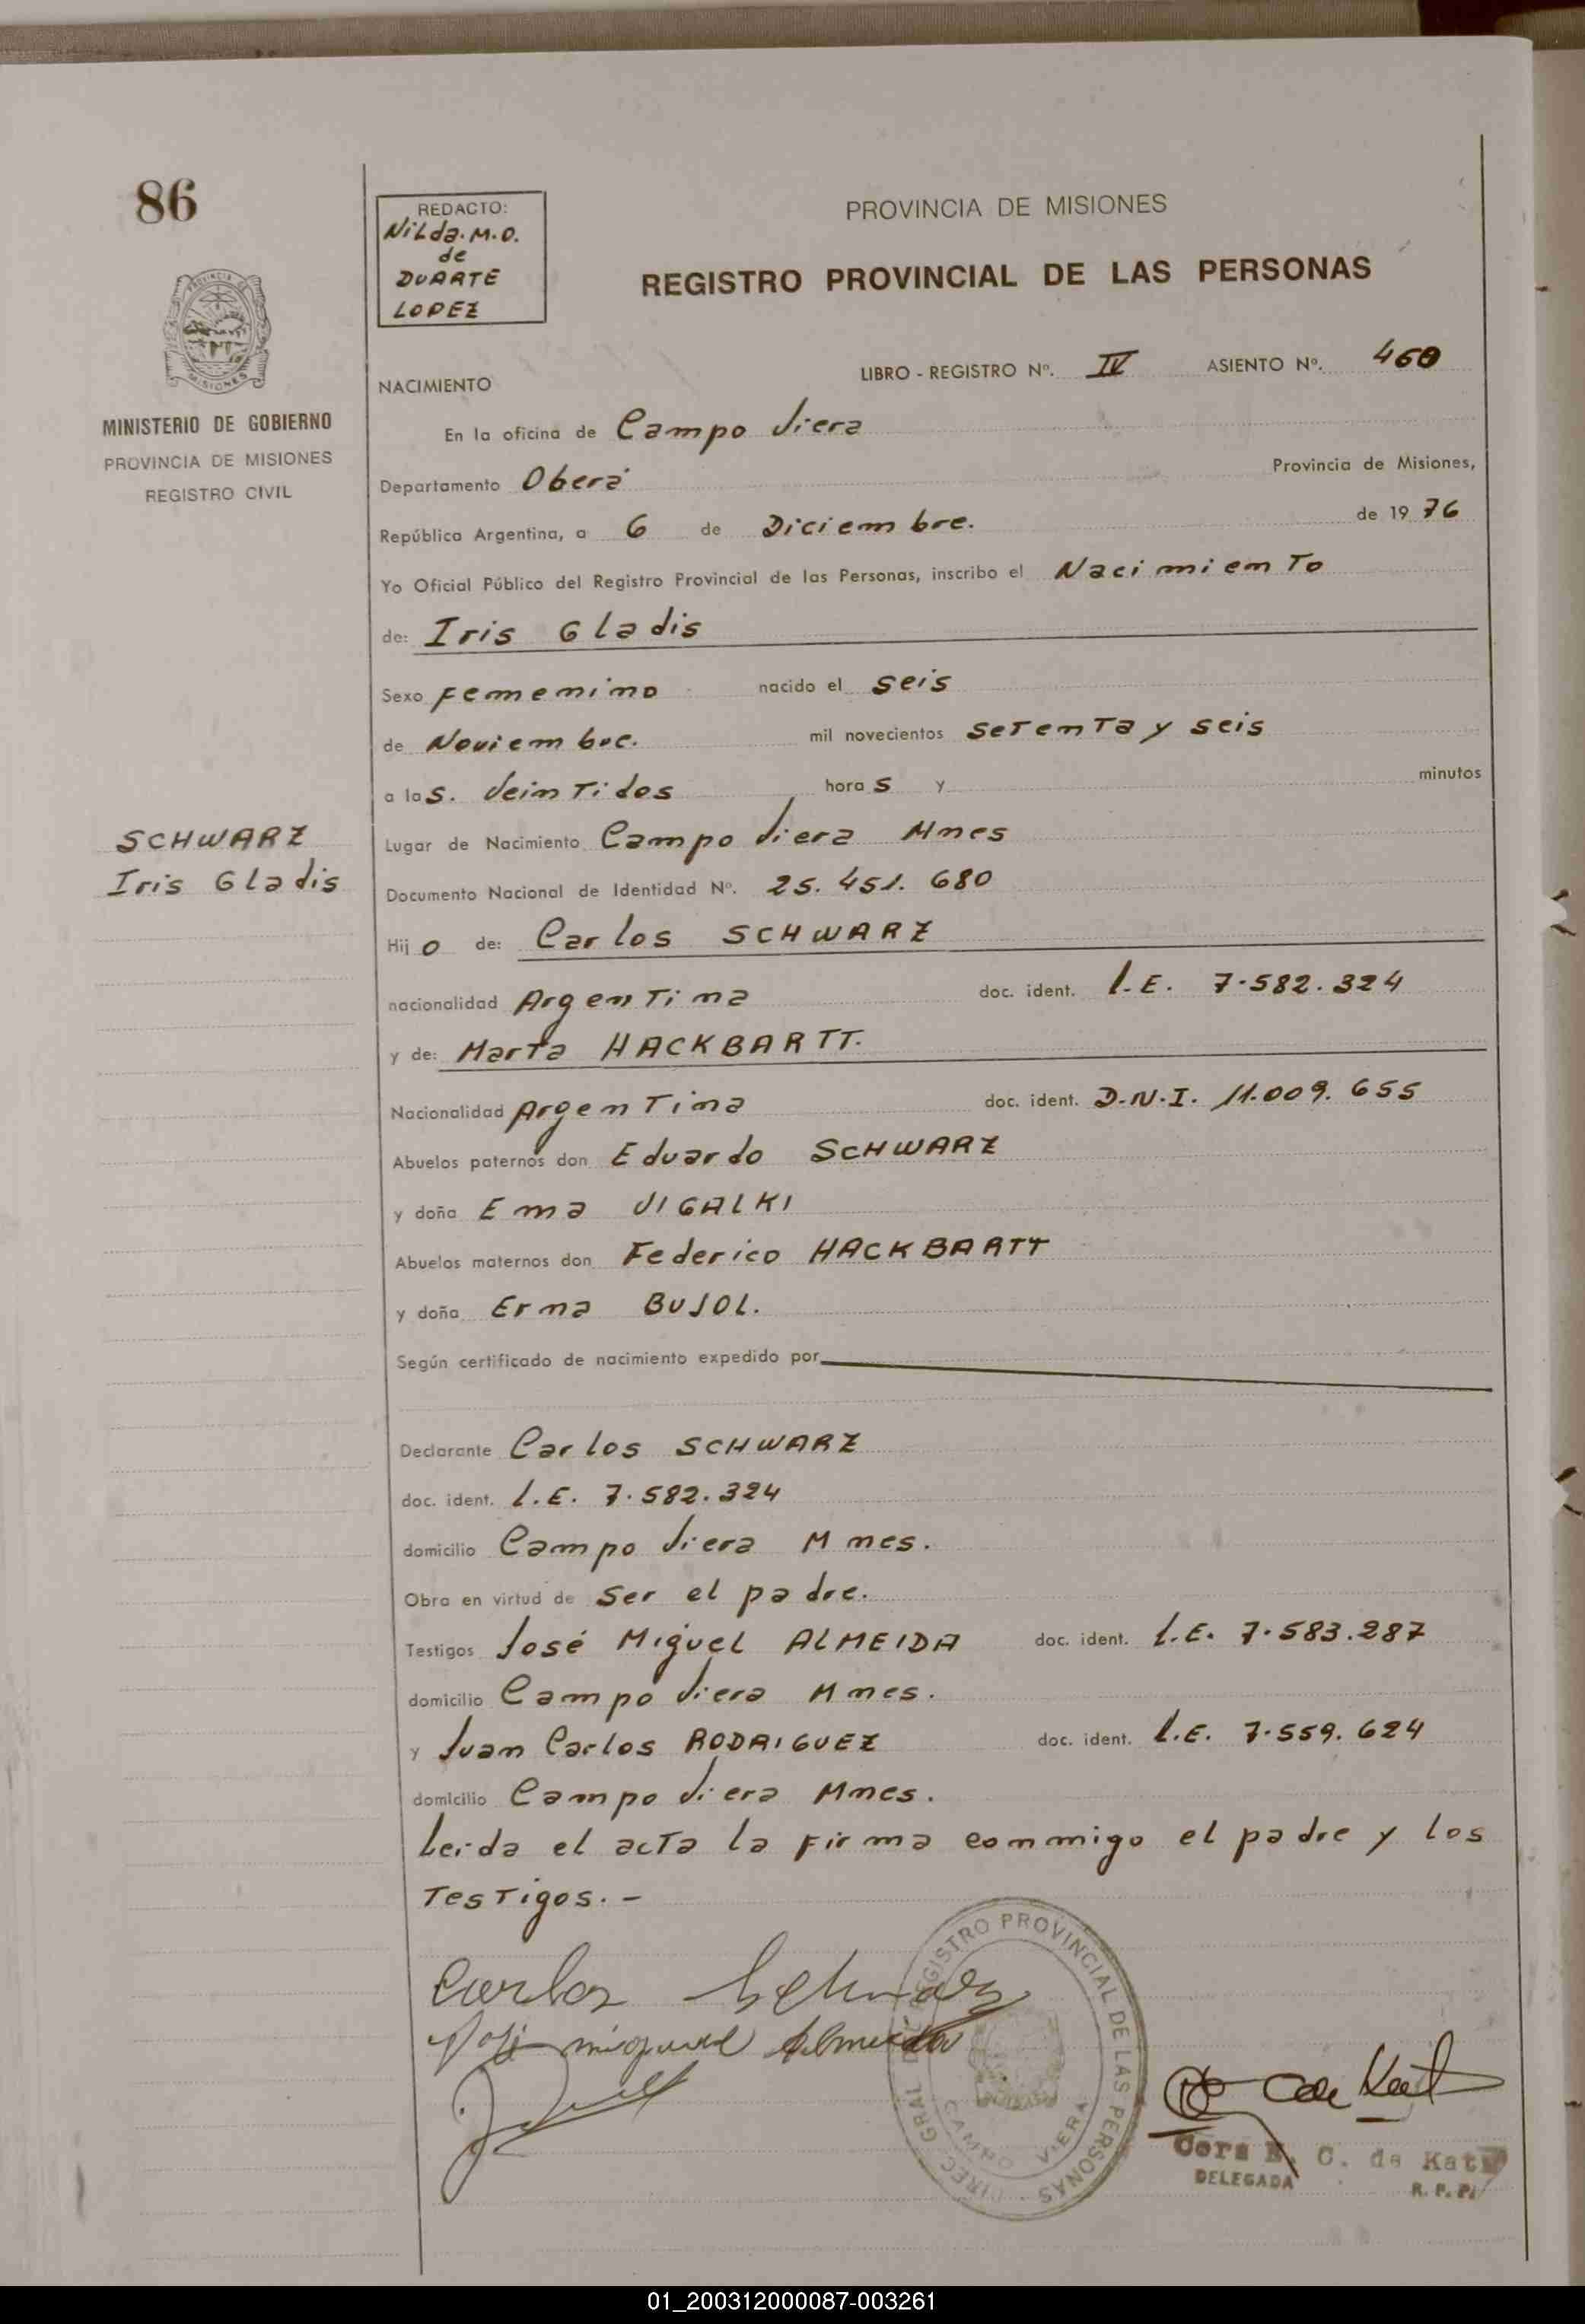 86
REDACTO:
Nilda. M. O.
de
DUARTE
LOPEZ
PROVINCIA DE MISIONES
REGISTRO PROVINCIAL DE LAS PERSONAS
PROVINCIA DE
MISIONES
MINISTERIO DE GOBIERNO
PROVINCIA DE MISIONES
REGISTRO CIVIL
NACIMIENTO LIBRO - REGISTRO Nº. IV ASIENTO Nº. 460
En la oficina de Campo Viera
Departamento Oberá Provincia de Misiones,
República Argentina, a 6 de Diciembre. de 1976
Yo Oficial Público del Registro Provincial de las Personas, inscribo el Nacimiento
de: Iris Gladis
Sexo Femenino nacido el seis
de Noviembre. mil novecientos setenta y seis
a las. Veintidos horas y minutos
SCHWARZ
Iris Gladis
Lugar de Nacimiento Campo Viera Mnes
Documento Nacional de Identidad Nº. 25.451.680
Hijo de: Carlos SCHWARZ
nacionalidad Argentina doc. ident. L.E. 7.582.324
y de: Marta HACKBARTT.
Nacionalidad Argentina doc. ident. D.N.I. 11.009.655
Abuelos paternos don Eduardo SCHWARZ
y doña Ema VIGALKI
Abuelos maternos don Federico HACKBARTT
y doña Erma BUJOL.
Según certificado de nacimiento expedido por
Declarante Carlos SCHWARZ
doc. ident. L.E. 7.582.324
domicilio Campo Viera Mnes.
Obra en virtud de ser el padre.
Testigos José Miguel ALMEIDA doc. ident. L.E. 7.583.287
domicilio Campo Viera Mnes.
y Juan Carlos RODRIGUEZ doc. ident. L.E. 7.559.624
domicilio Campo Viera Mnes.
Leida el acta la firma conmigo el padre y los
Testigos. -
Carlos Schwarz
José miguel Almeida
DIREC. GRAL. DE REGISTRO PROVINCIAL DE LAS PERSONAS
CAMPO VIERA
C. de
DELEGADA
R. P. P.
01_200312000087-003261